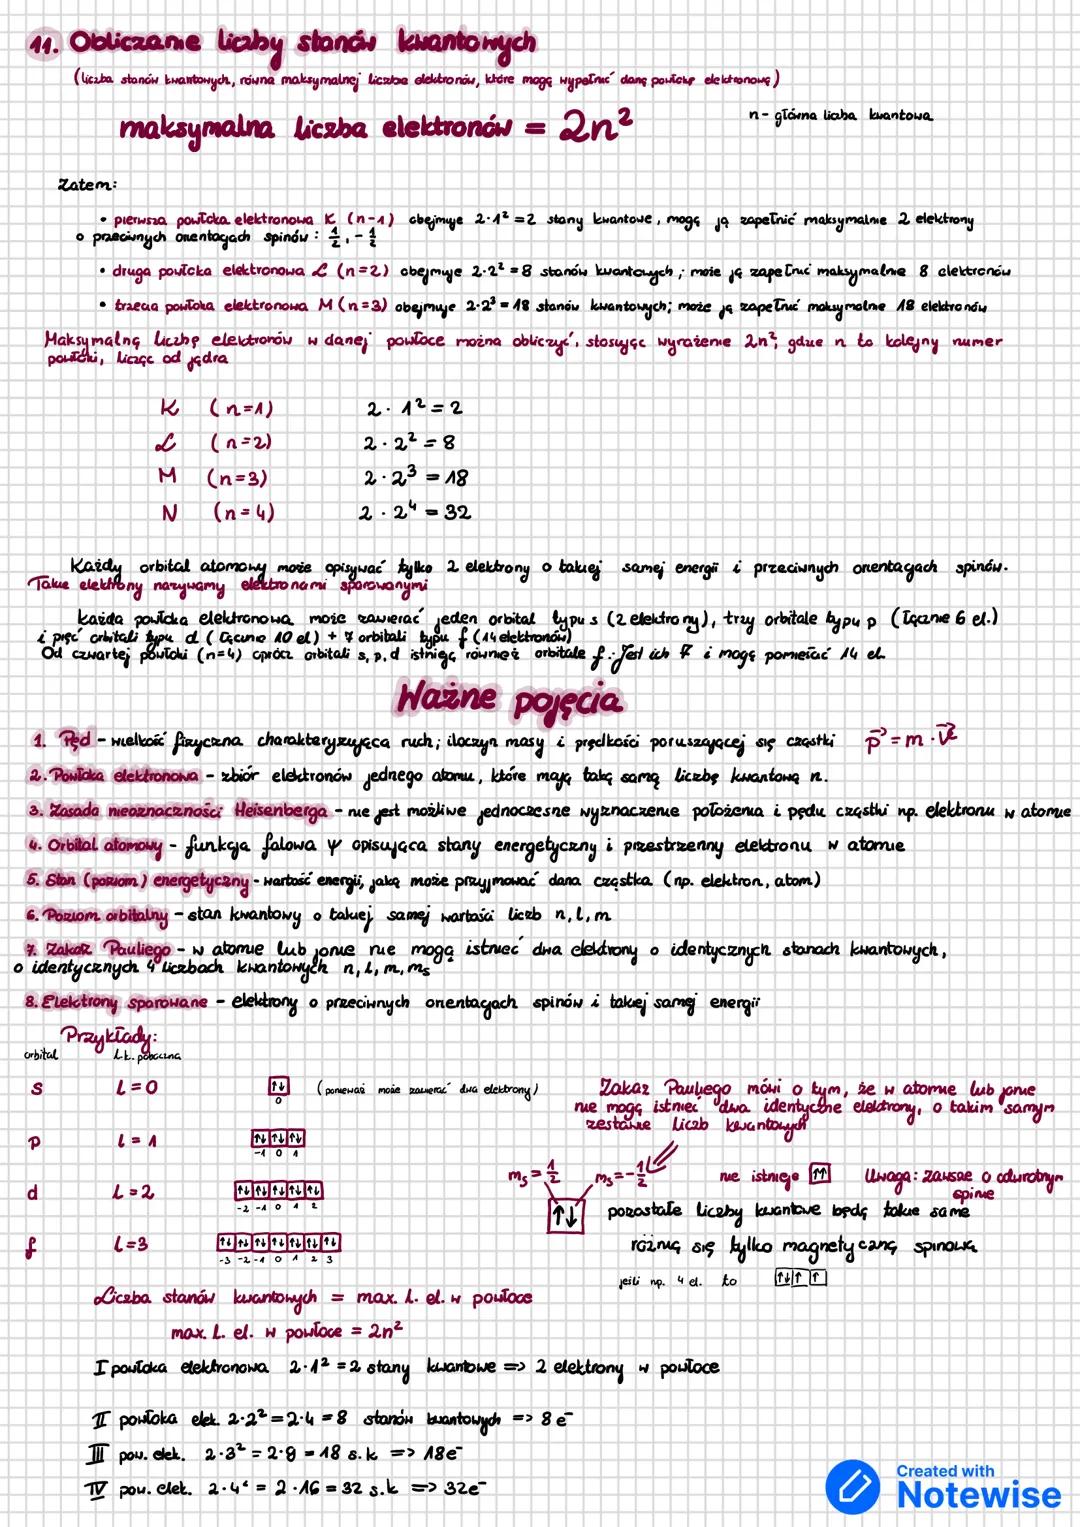 11. Obliczanie liczby stanów kwantowych
(liczba stanów kwantowych, równa maksymalnej liczbie elektronów, które mogą wypełnić daną powłokę elektronową)
maksymalna liczba elektronów = 2n²
n - główna liczba kwantowa
Zatem:
• pierwsza powłoka elektronowa K (n-1) obejmuje 2·1² = 2 stany kwantowe, mogą ją zapełnić maksymalnie 2 elektrony
o przeciwnych orientacjach spinów: 1/2, -1/2
• druga powłoka elektronowa L (n=2) obejmuje 2·2² = 8 stanów kwantowych; może ją zapełnić maksymalnie 8 elektronów
• trzecia powłoka elektronowa M (n=3) obejmuje 2·2³ = 18 stanów kwantowych; może ją zapełnić maksymalnie 18 elektronów
Maksymalną liczbę elektronów w danej powłoce można obliczyć, stosując wyrażenie 2n², gdzie n to kolejny numer
powłoki, licząc od jądra
K (n=1) 2·1² = 2
L (n=2) 2·2² = 8
M (n=3) 2·2³ = 18
N (n=4) 2·2⁴ = 32
Każdy orbital atomowy może opisywać tylko 2 elektrony o takiej samej energii i przeciwnych orientacjach spinów.
Takie elektrony nazywamy elektronami sparowanymi
Każda powłoka elektronowa może zawierać jeden orbital typu s (2 elektrony), trzy orbitale typu p (łącznie 6 el.)
i pięć orbitali typu d (łącznie 10 el) + 7 orbitali typu f (14 elektronów)
Od czwartej powłoki (n=4) oprócz orbitali s, p, d istnieją również orbitale f. Jest ich 7 i mogą pomieścić 14 el.
Ważne pojęcia
1. Pęd - wielkość fizyczna charakteryzująca ruch; iloczyn masy i prędkości poruszającej się cząstki p⃗ = m · v⃗
2. Powłoka elektronowa - zbiór elektronów jednego atomu, które mają taką samą liczbę kwantową n.
3. Zasada nieoznaczności Heisenberga - nie jest możliwe jednoczesne wyznaczenie położenia i pędu cząstki np. elektronu w atomie
4. Orbital atomowy - funkcja falowa ψ opisująca stany energetyczny i przestrzenny elektronu w atomie
5. Stan (poziom) energetyczny - wartość energii, jaką może przyjmować dana cząstka (np. elektron, atom)
6. Poziom orbitalny - stan kwantowy o takiej samej wartości liczb n, l, m
7. Zakaz Pauliego - w atomie lub jonie nie mogą istnieć dwa elektrony o identycznych stanach kwantowych,
o identycznych 4 liczbach kwantowych n, l, m, ms
8. Elektrony sparowane - elektrony o przeciwnych orientacjach spinów i takiej samej energii
Przykłady:
orbital l.k. poboczna
s l = 0 ↑↓ (ponieważ może zawierać dwa elektrony)
0
p l = 1 ↑↓ ↑↓ ↑↓
-1 0 1
d l = 2 ↑↓ ↑↓ ↑↓ ↑↓ ↑↓
-2 -1 0 1 2
f l=3 ↑↓ ↑↓ ↑↓ ↑↓ ↑↓ ↑↓ ↑↓
-3 -2 -1 0 1 2 3
Zakaz Pauliego mówi o tym, że w atomie lub jonie
nie mogą istnieć dwa identyczne elektrony, o takim samym
zestawie liczb kwantowych
ms = 1/2 ms = -1/2
↑↓
nie istnieje ↑↑ Uwaga: zawsze o odwrotnym
spinie
pozostałe liczby kwantowe będą takie same
różnią się tylko magnetyczną spinową
jeśli np. 4 el. to ↑↓ ↑ ↑
Liczba stanów kwantowych = max. l. el. w powłoce
max. l. el. w powłoce = 2n²
I powłoka elektronowa 2·1² = 2 stany kwantowe => 2 elektrony w powłoce
II powłoka elek. 2·2² = 2·4 = 8 stanów kwantowych => 8 e⁻
III pow. elek. 2·3² = 2·9 = 18 s.k => 18e⁻
IV pow. elek. 2·4² = 2·16 = 32 s.k => 32e⁻
Created with
Notewise